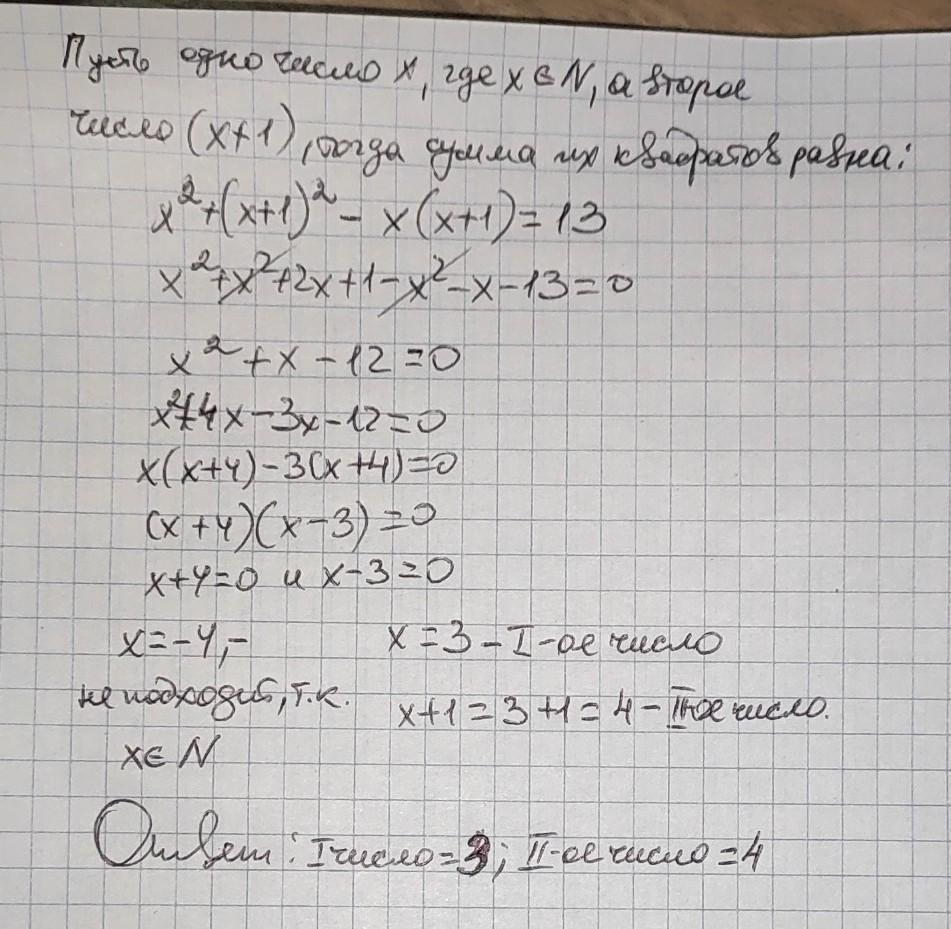 Пусть одно число x, где x ∈ N, а второе
число (x+1), тогда сумма их квадратов равна:
x²+(x+1)²- x(x+1)=13
x²+x²+2x+1-x²-x-13=0
x²+x-12=0
x²+4x-3x-12=0
x(x+4)-3(x+4)=0
(x+4)(x-3)=0
x+4=0 и x-3=0
x=-4,- x=3-I-ое число
не подходит, т.к. x+1=3+1=4-II-ое число.
x∈N
Ответ: I число=3; II-ое число=4